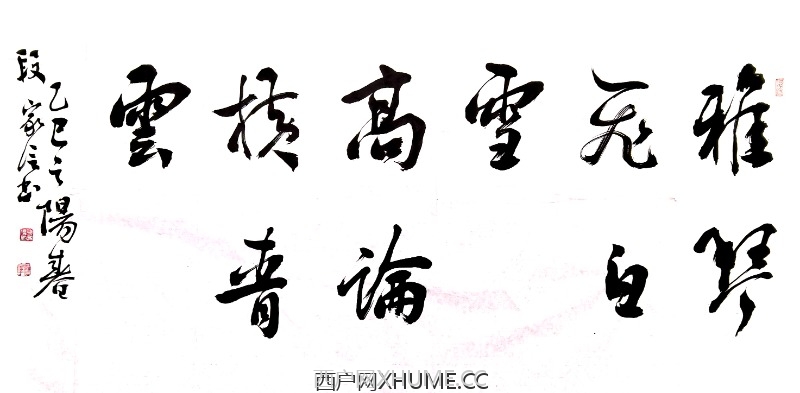 雅琴
飛白
雪
高論
橫青
雲
乙巳之陽春
段家信書
西户网XHUME.CC